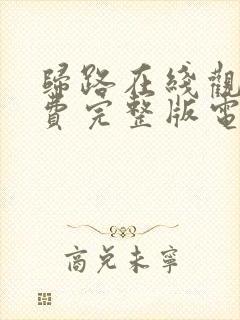 歸路在綫觀
費完整版電
商兌未寧